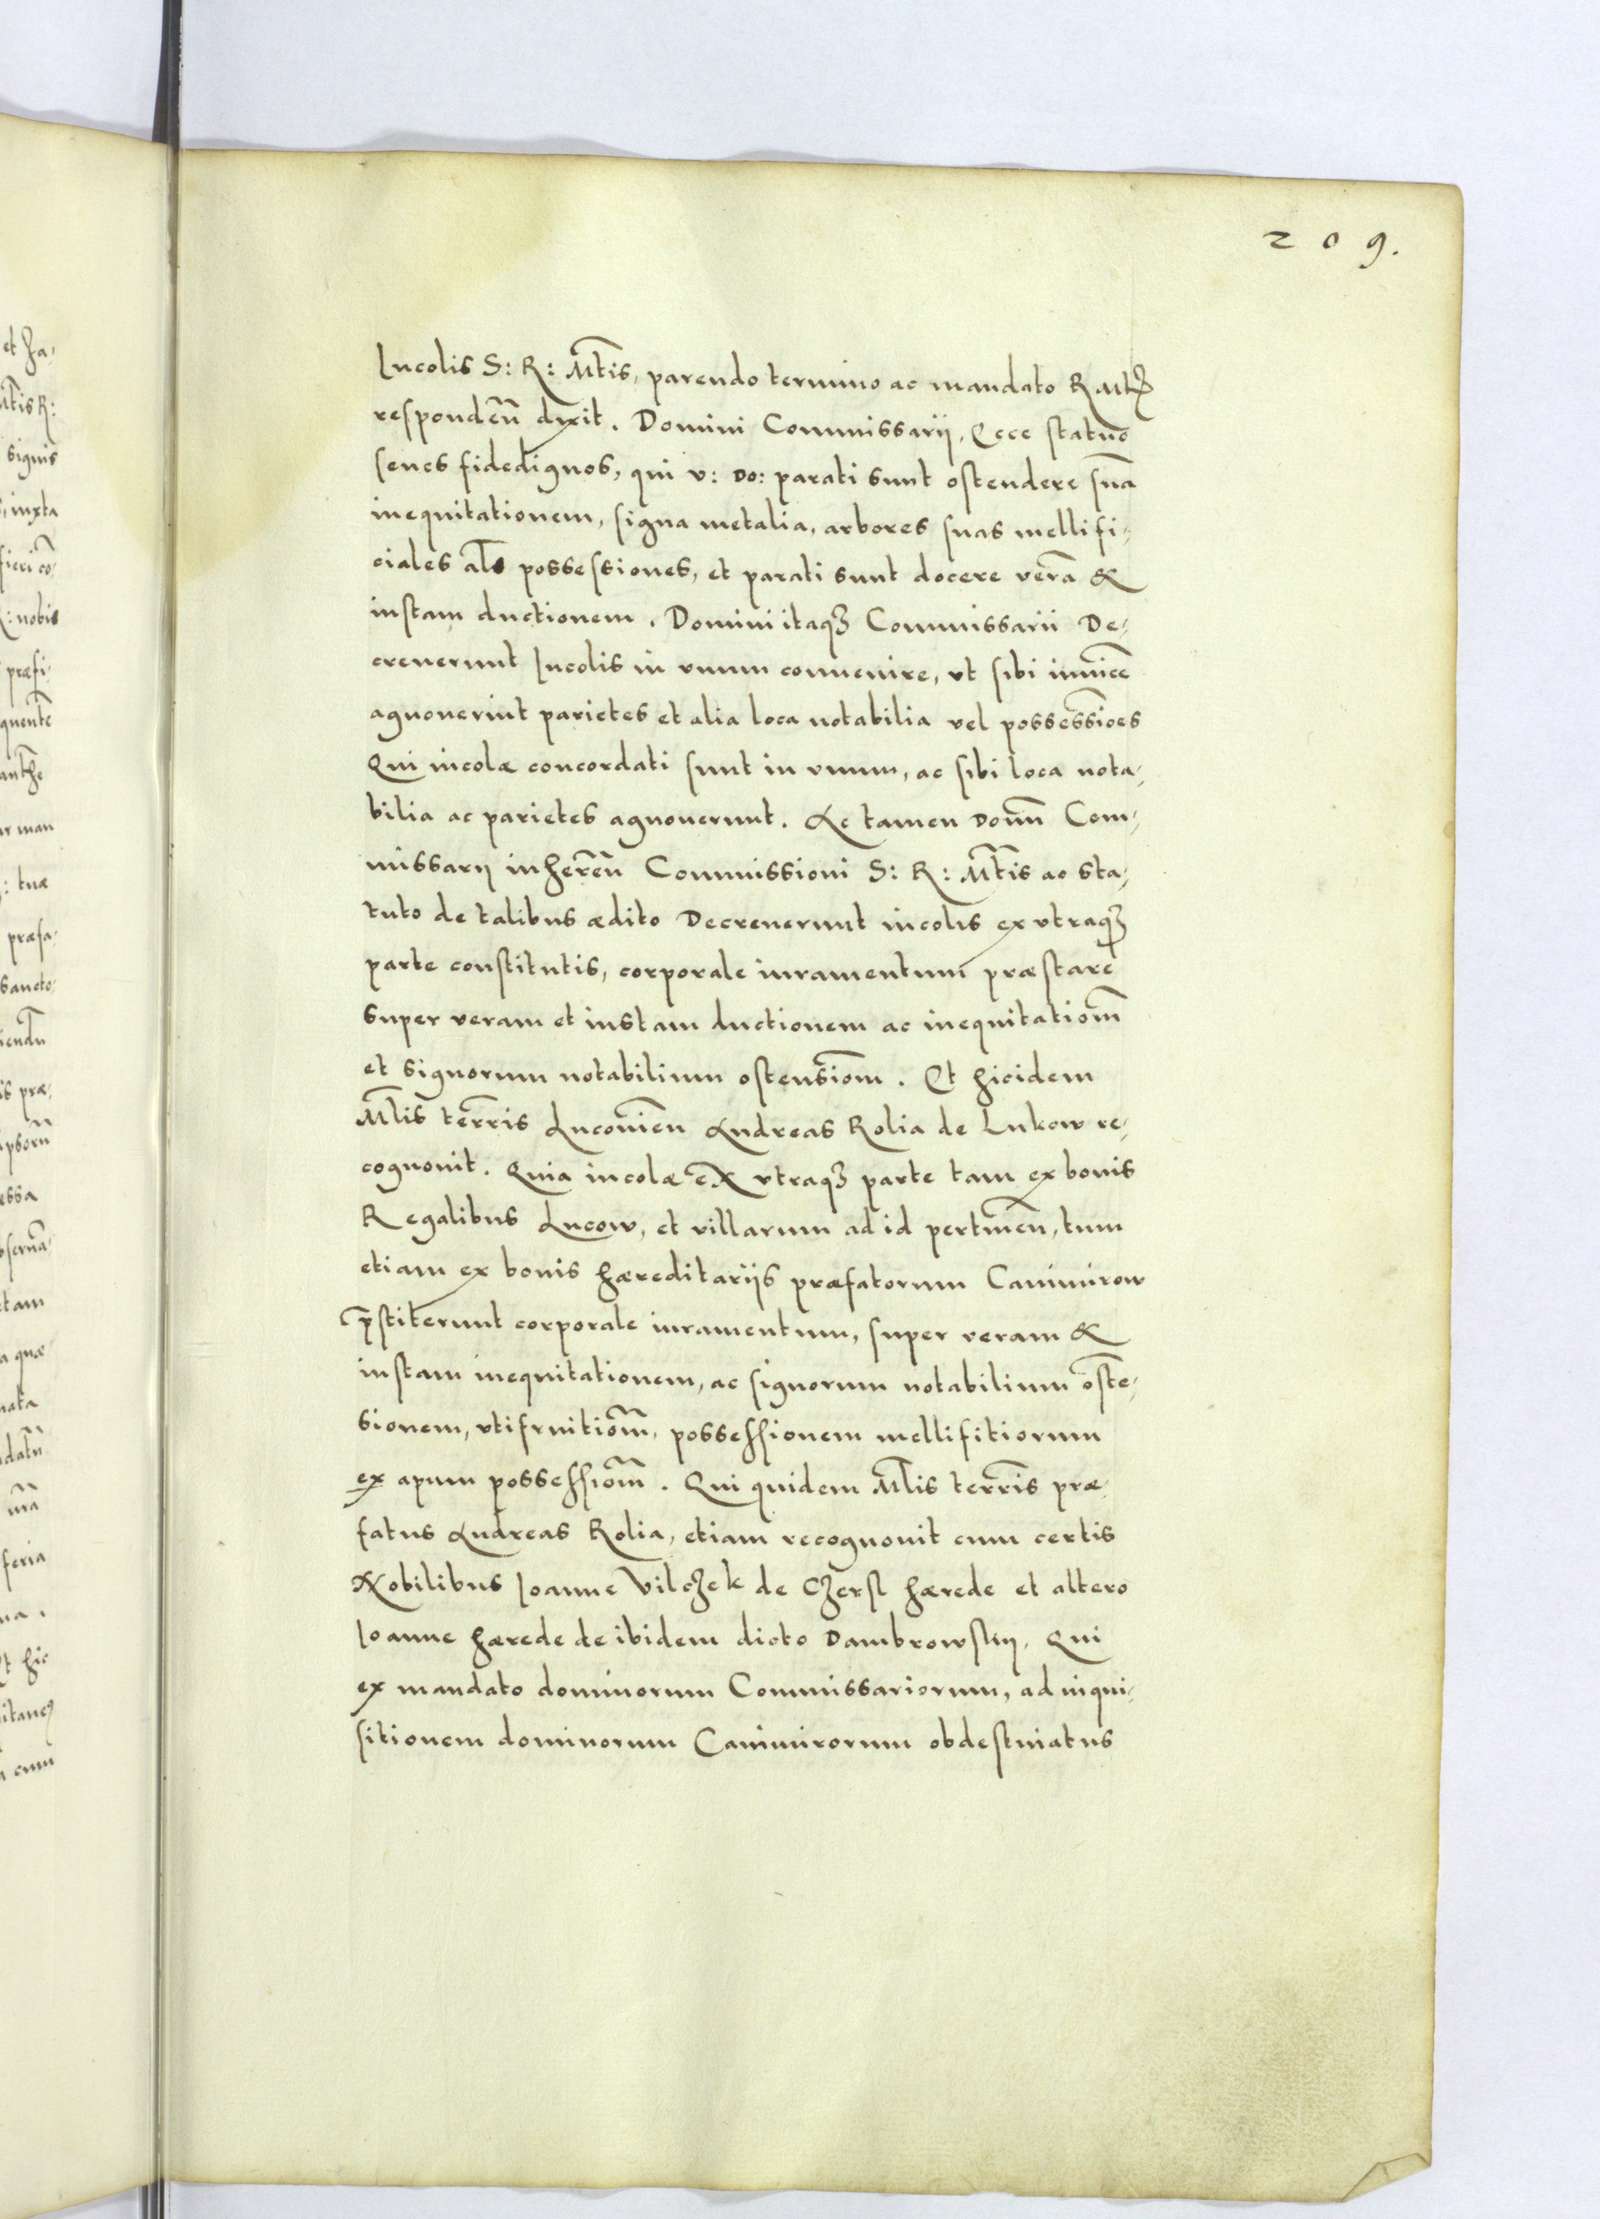 209.
Incolis S: R: Mt̄is, parendo termino ac mandato R
respondeñ dixit. Domini Commissarij, Ecce statuo
senes fidedignos, qui v: do: parati sunt ostendere suā
inequitationem, signa metalia, arbores suas mellifi-
ciales al̄s possessiones, et parati sunt docere verā &
iustam ductionem. Domini itaqȝ Commissarii De-
creuerunt Incolis in vnum conuenire, vt sibi inuicē
agnouerint parietes et alia loca notabilia vel possessiōes
Qui incolæ concordati sunt in vnum, ac sibi loca nota-
bilia ac parietes agnouerunt. Ac tamen Domñ Com-
missarij inhereñ Commissioni S: R: Mt̄is ac sta-
tuto de talibus ædito Decreuerunt incolis ex vtraqȝ
parte constitutis, corporale iuramentum præstare
super veram et iustam ductionem ac inequitatiōm
et signorum notabilium ostensiōm. Et hicidem
Ml̄is terr̄is Lucouieñ Andreas Rolia de Lukow re-
cognouit. Quia incolæ ex vtraqȝ parte tam ex bonis
Regalibus Lucow, et villarum ad id pertineñ, tum
etiam ex bonis hæreditarijs præfatorum Canimirow
p̄stiterunt corporale iuramentum, super veram &
iustam inequitationem, ac signorum notabilium ostē-
sionem, vtifruitiōm, possessionem mellifitiorum
ex apum possessiōm. Qui quidem Ml̄is terr̄is præ-
fatus Andreas Rolia, etiam recognouit cum certis
Nobilibus Ioanne Vilchek de Czersl hærede et altero
Ioanne hærede de ibidem dicto Dambrowskij. Qui
ex mandato dominorum Commissariorum, ad inqui-
sitionem dominorum Canimirorum obdestinatus